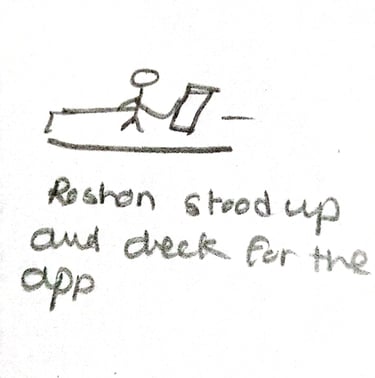 Roshan stood up
and check for the
app